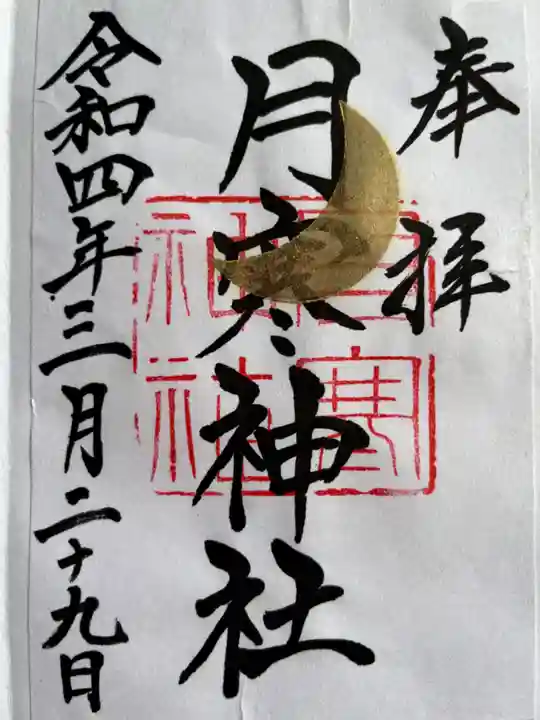 奉拝
月寒神社
令和四年三月二十九日
月寒
神社